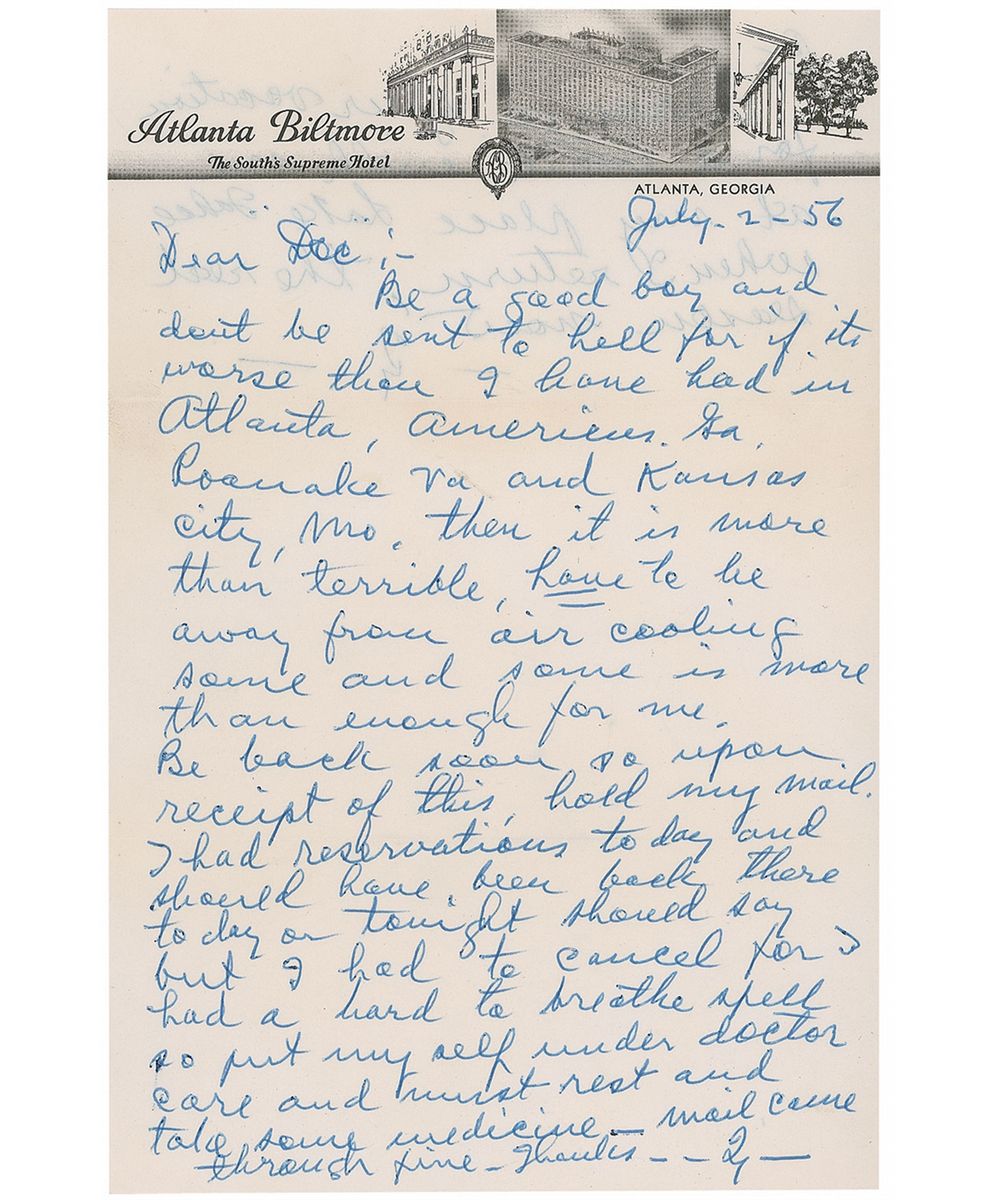 Atlanta Biltmore
The South's Supreme Hotel
AB
ATLANTA, GEORGIA
July - 2 - 56
Dear Doc ;-
Be a good boy and
dont be sent to hell for if its
worse than I have had in
Atlanta, Americus. Ga,
Roanake Va and Kansas
city, Mo. then it is more
than terrible, have to be
away from air cooling
some and some is more
than enough for me.
Be back soon so upon
receipt of this, hold my mail.
I had reservations to day and
should have been back there
to day or tonight should say
but I had to cancel for I
had a hard to breathe spell
so put my self under doctor
care and must rest and
take some medicine — mail came
through fine - Thanks - - 2, —